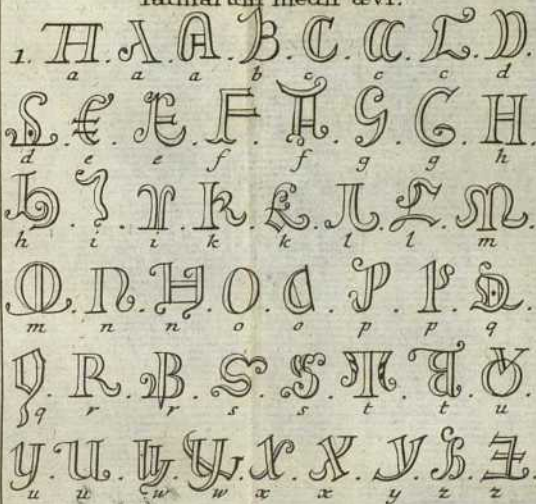 latinarum medii ævi.
1. A. A. A. B. C. C. C. D.
a a a b c c c d
D. E. E. F. F. G. G. H
d e e f f g g h
H. I. I. K. K. L. L. M
h i i k k l l m
M. N. N. O. O. P. P. Q.
m n n o o p p q
Q. R. R. S. S. T. T. U
q r r s s t t u
U. U. W. W. X. X. Y. Z. Z.
u u w w x x y z z